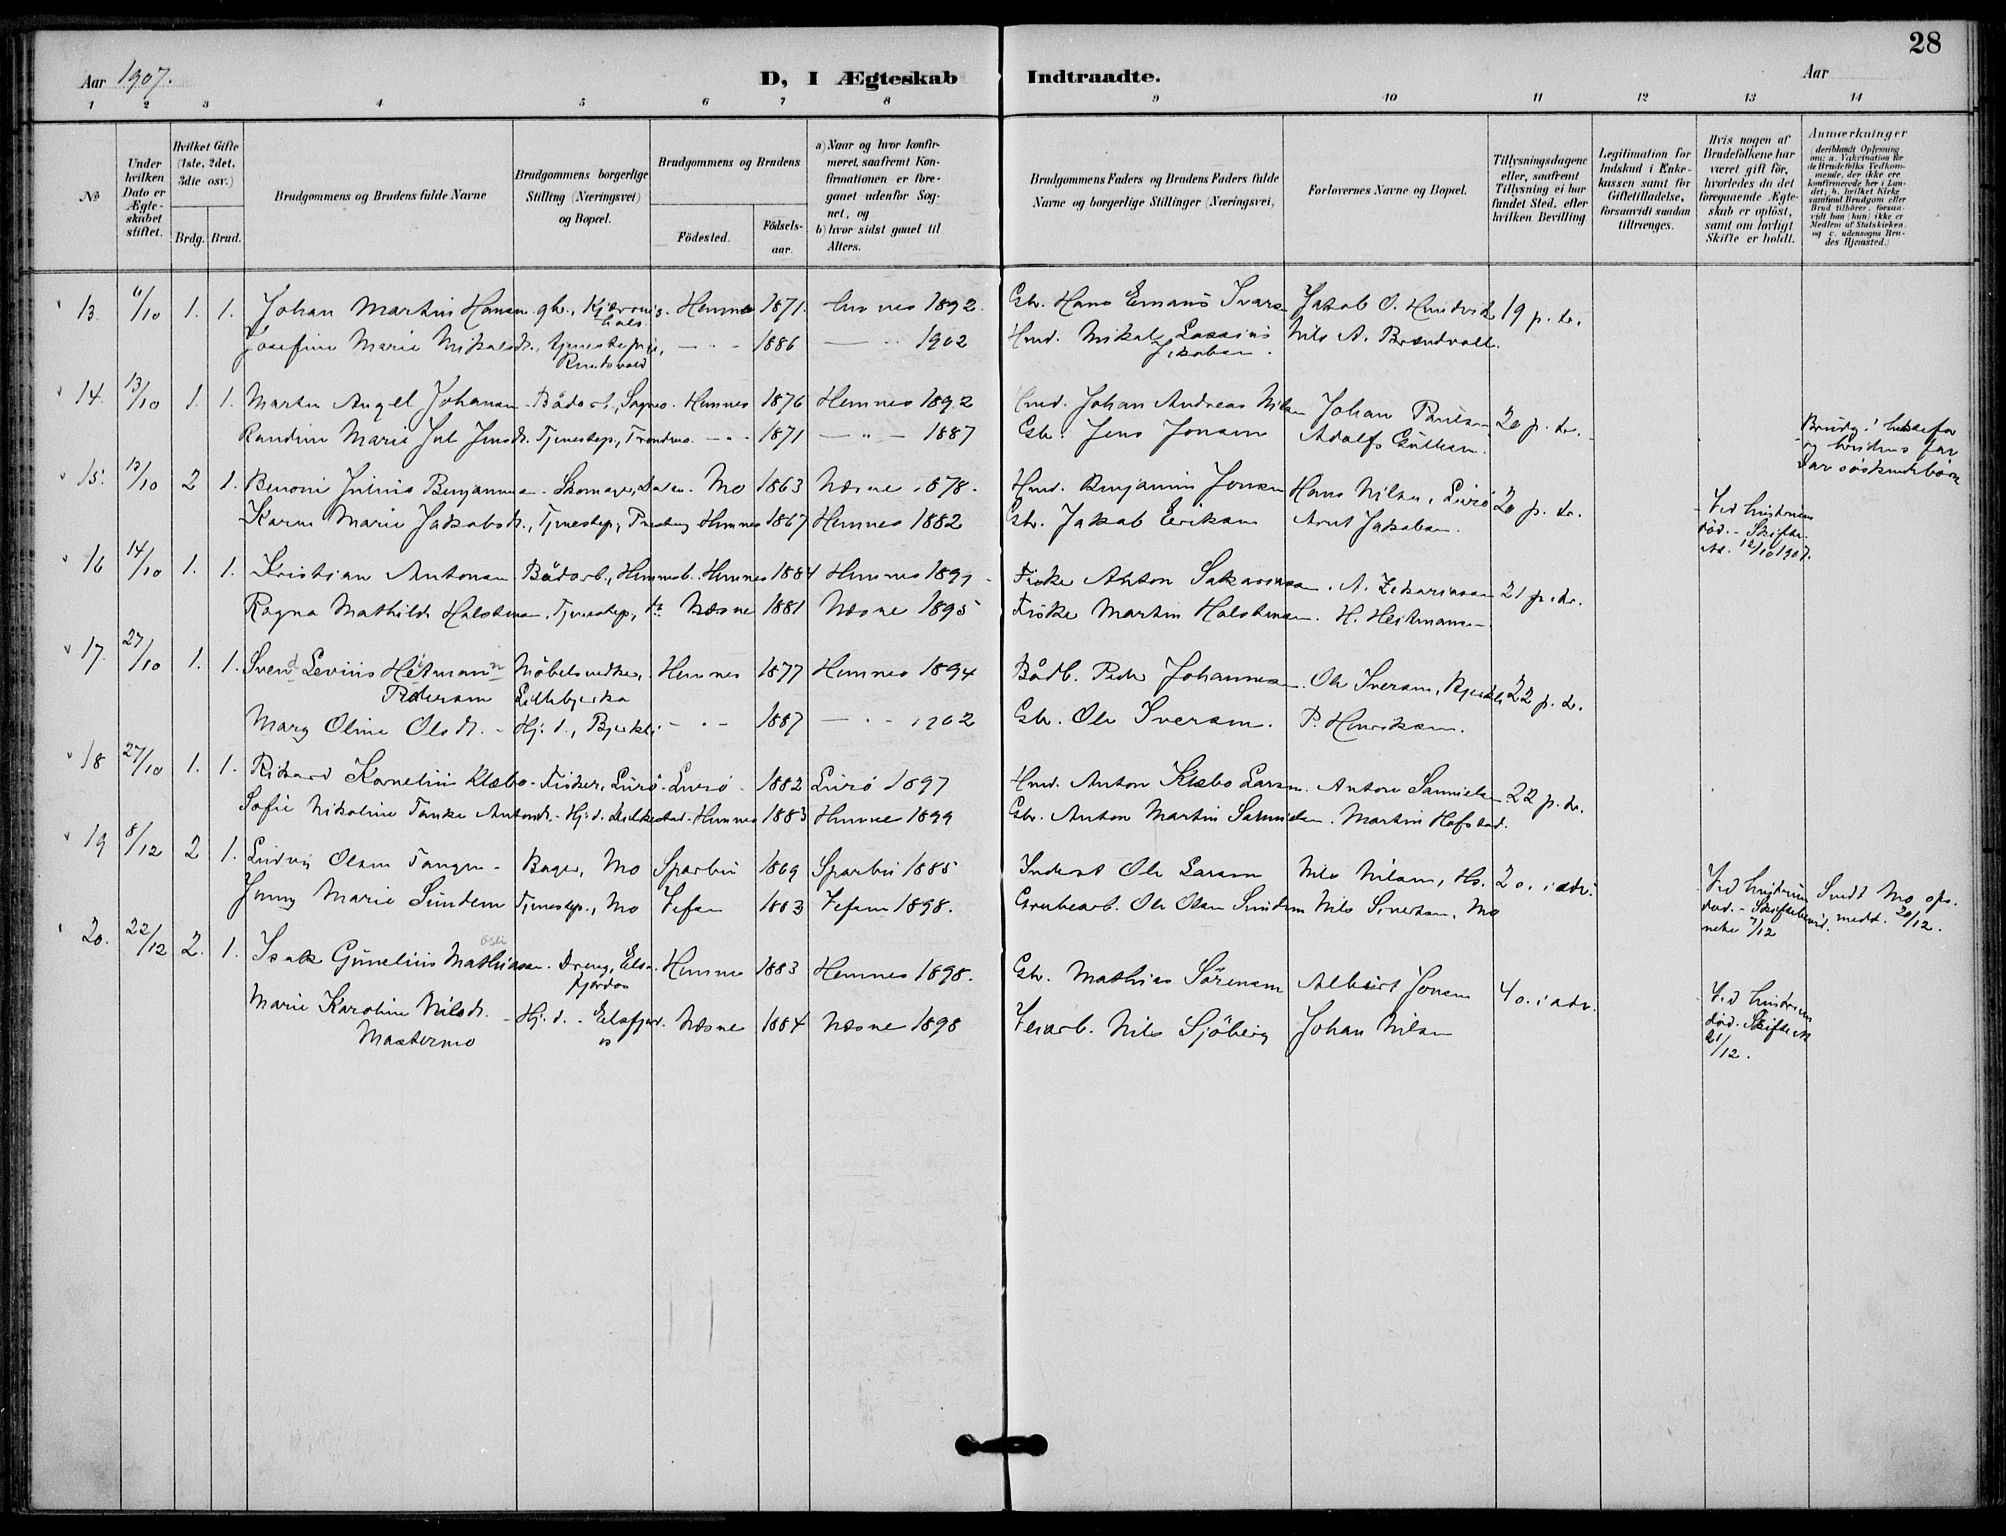 28
Aar 1907. D, I Ægteskab Indtraadte. Aar
1 2 3 4 5 6 7 8 9 10 11 12 13 14
No
Under hvilken Dato er Ægteskabet stiftet.
Hvilket Gifte (1ste, 2det, 3die osv.)
Brdg. Brud.
Brudgommens og Brudens fulde Navne
Brudgommens borgerlige Stilling (Næringsvei) og Bopæl.
Brudgommens og Brudens
Fødested. Fødselsaar.
a) Naar og hvor konfirmeret, saafremt Konfirmationen er foregaaet udenfor Sognet, og
b) hvor sidst gaaet til Alters.
Brudgommens Faders og Brudens Faders fulde Navne og borgerlige Stillinger (Næringsvei,
Forlovernes Navne og Bopæl.
Tillysningsdagene eller, saafremt Tillysning ei har fundet Sted, efter hvilken Bevilling
Legitimation for Indskud i Enkekassen samt for Giftetilladelse, forsaavidt saadan tiltrænges.
Hvis nogen af Brudefolkene har været gift før, hvorledes da det foregaaende Ægteskab er opløst, samt om lovligt Skifte er holdt.
Anmærkninger (deriblandt Oplysning om: a. Vakcination for de Brudefolks Vedkommende, der ikke ere konfirmerede her i Landet; b. hvilket Kirkesamfund Brudgom eller Brud tilhører, forsaavidt han (hun) ikke er Medlem af Statskirken, og c. udensogns Brudes Hjemsted.)
13. 6/10 1. 1. Johan Martin Hansen Hemnes 1871. Hemnes 1892. Gbr. Hans Emans Ivars Jakob O. Hundvik 19 p. tr.
Josefine Marie Mikalsdt., tjenestepige, 1886 1902 Hmd. Mikal Lassius Jakobsen. Nils A. Brændvoll.
14. 13/10 1. 1. Martin Angel Johansen Bådarb., Hemnes 1876 Hemnes 1892 Hmd. Johan Andreas Nilsen Johan Paulsen 20 p. tr.
Randine Marie Jul Jensdt. Tjenestep., 1871 1887 Gbr. Jens Jonsen Adolf
Brudg.'s
og brudens far
var søskendebørn
15. 13/10 2 1. Benoni Julius Benjaminsen Skomager, Mo 1863 Næsne 1878. Hmd. Benjamin Jonsen Hans Nilsen, Lurö 20 p. tr.
Karen Marie Jakobsdt., Tjenestep., Hemnes 1867 Hemnes 1882 Gbr. Jakob Eriksen Arnt Jakobsen.
Ved hustruens
död. - Skifte.
12/10 1907.
16 14/10 1. 1. Kristian Antonsen Bådarb., Hemnesb. Hemnes 1884 Hemnes Fisker Anton Sakariasen. A. Zakariassen 21 p. tr.
Ragna Mathilde Halstensen. Tjenestep., Næsne 1881 Næsne 1895 Fisker Martin Halstensen. H. Heitmansen
17. 27/10 1. 1. Svend Levins Heitmann Pedersen Möbelsnedker, Lillebjerka Hemnes 1877 Hemnes 1894 Bådb. Peder Johannesen. Ole Iversen, 22 p. tr.
Marg Oline Olsdt. - Hj. d., Bjerkli 1887 1902 Gbr. Ole Iversen. P. Henriksen.
18 27/10 1. 1. Rikard Kornelius Klæbo - Fisker, Lurö Lurö 1882 Lurö 1897 Hmd. Anton Klæbo Larsen. Anton Samuelsen 22 p. tr.
Sofie Nikoline Tanke Antondt. - Hj. d. Hemnes 1883 Hemnes 1899 Gbr. Anton Martin Samuelsen. Martin Hofstad.
19 8/12 2 1. Ludvig Olsen Tangen - Bager, Mo Sparbu 1869 Sparbu 1885 Inderst Ole Larsen Nils Nilsen, Hs. 20. i adv.
Jenny Marie Sundem Tjenestep., Mo Vefsen 1883 Vefsen 1898. Grubearb. Ole Olsen Sundem Nils Sivertsen, Mo
Ved hustruens
död. - Skiftebevid.
7/12
Sendt Mo ops.
medd. 20/12.
20. 22/12 2. 1. Isak Gunelius Mathiassen. Dreng, Elsfjordos Hemnes 1883 Hemnes 1898. Gbr. Mathias Sörensen Albert Jonsen 40. i adv.
Marie Karoline Nilsdt. Mastermo Hj. d. - Elsfjord. Næsne 1884 Næsne 1898 Veiarb. Nils Sjöberg Johan Nilsen
Ved hustruens
död. Skifteatt.
21/12.